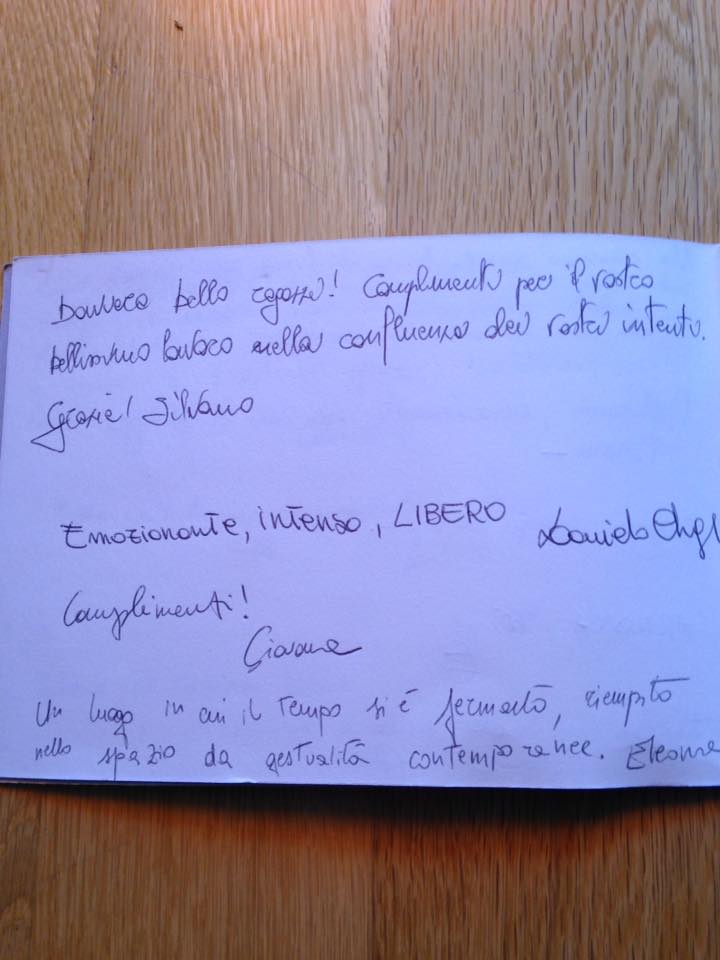 Davvero bello ragazzi! Complimenti per il vostro
bellissimo lavoro nella confluenza dei vostri intenti.
Grazie! Silvano
Emozionante, intenso, LIBERO Daniela
Complimenti!
Giovanna
Un luogo in cui il tempo si è fermato, riempito
nello spazio da gestualità contemporanee.